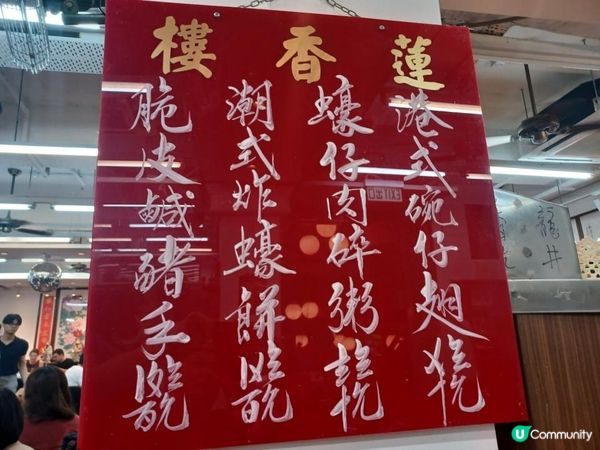 蓮香樓
港式碗仔翅
蠔仔肉碎粥
潮式炸蠔餅
脆皮鹹豬手
龍井
U Community